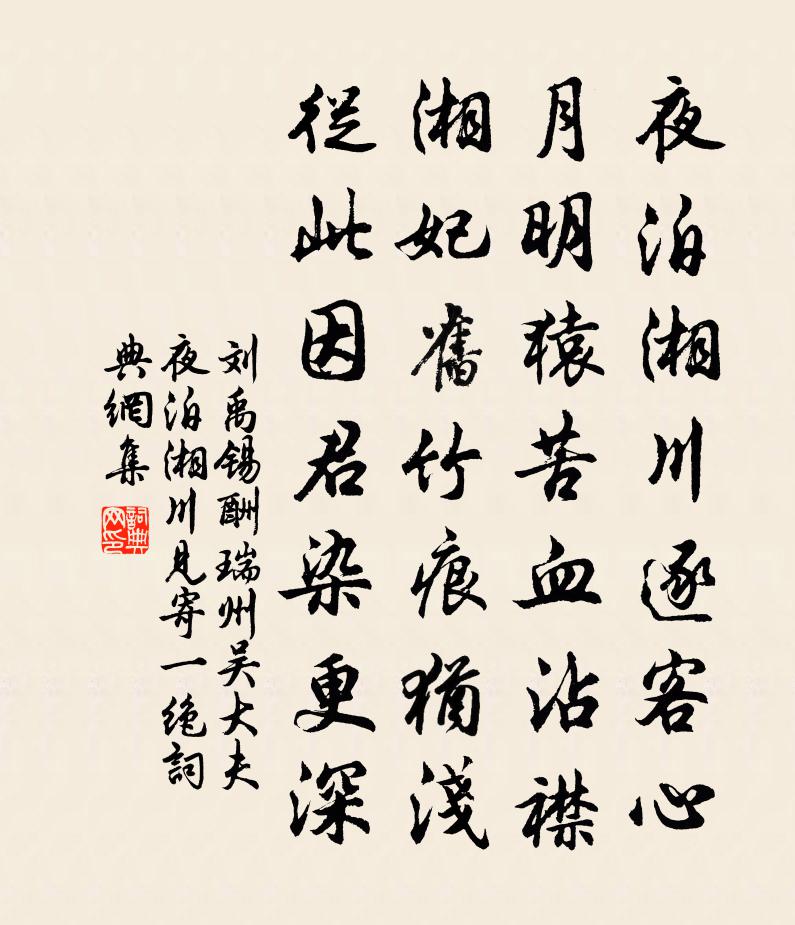 夜泊湘川逐客心
月明猿苦血沾襟
湘妃舊竹痕猶淺
從此因君染更深
刘禹锡酬瑞州吴大夫
夜泊湘川見寄一绝詞
典網集
詞典
网印